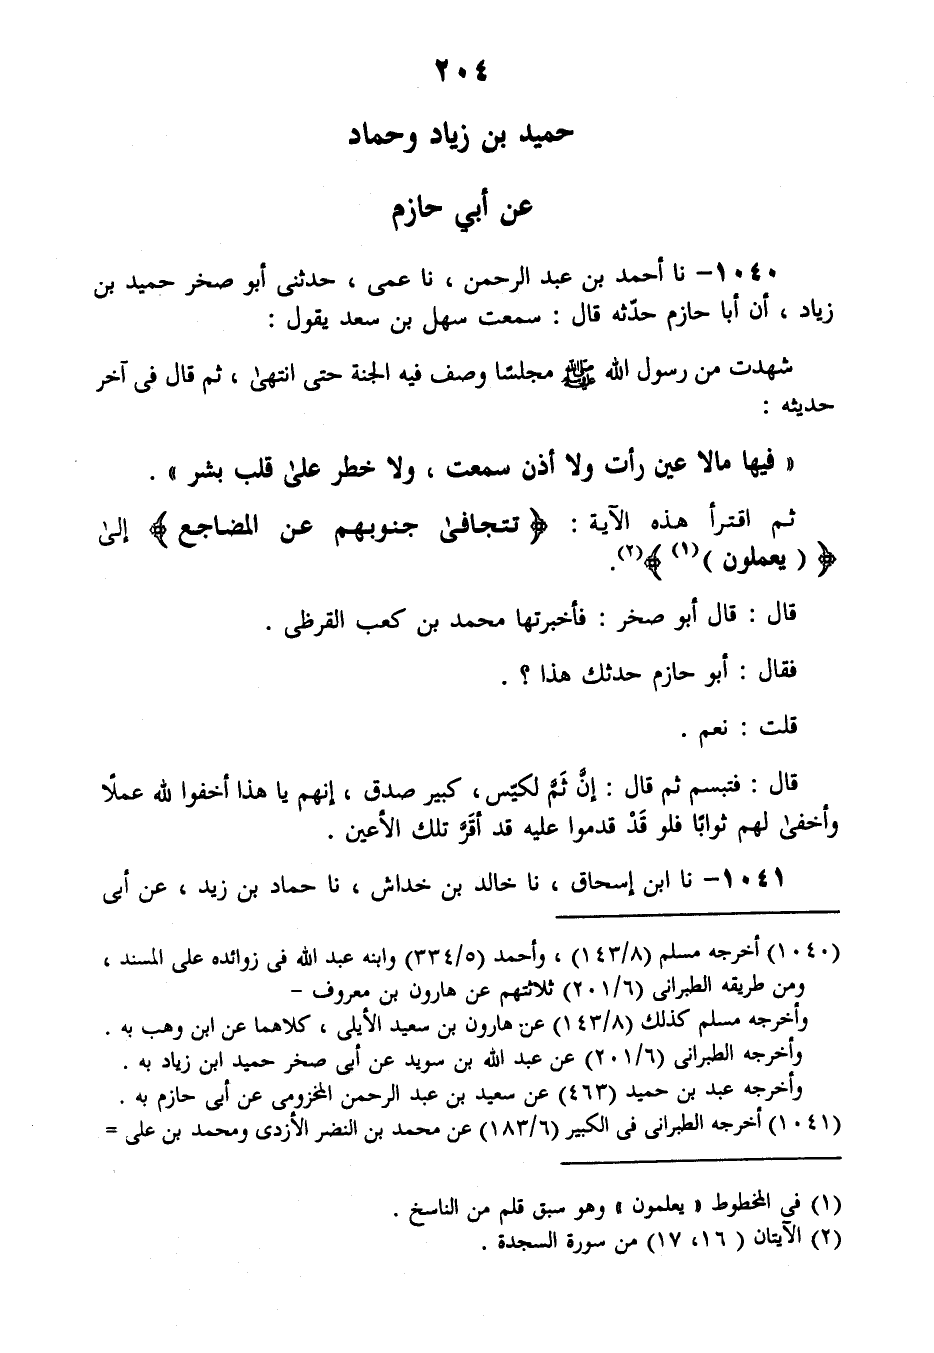 ٢٠٤
حميد بن زياد وحماد
عن أبي حازم
١٠٤٠– نا أحمد بن عبد الرحمن ، نا عمى ، حدثنى أبو صخر حميد بن
زياد ، أن أبا حازم حدّثه قال : سمعت سهل بن سعد يقول :
شهدت من رسول الله ﷺ مجلسًا وصف فيه الجنة حتى انتهىٰ ، ثم قال فى آخر
حديثه :
« فيها مالا عين رأت ولا أذن سمعت ، ولا خطر علىٰ قلب بشر » .
ثم اقترأ هذه الآية : ﴿ تتجافىٰ جنوبهم عن المضاجع ﴾ إلىٰ
﴿ ( يعملون )(١) ﴾(٢).
قال : قال أبو صخر : فأخبرتها محمد بن كعب القرظى .
فقال : أبو حازم حدثك هذا ؟ .
قلت : نعم .
قال : فتبسم ثم قال : إنَّ ثَمَّ لكيّس ، كبير صدق ، إنهم يا هذا أخفوا لله عملًا
وأخفىٰ لهم ثوابًا فلو قَدْ قدموا عليه قد أقَرَّ تلك الأعين .
١٠٤١– نا ابن إسحاق ، نا خالد بن خداش ، نا حماد بن زيد ، عن أبى
(١٠٤٠) أخرجه مسلم (١٤٣/٨) ، وأحمد (٣٣٤/٥) وابنه عبد الله فى زوائده على المسند ،
ومن طريقه الطبرانى (٢٠١/٦) ثلاثتهم عن هارون بن معروف –
وأخرجه مسلم كذلك (١٤٣/٨) عن هارون بن سعيد الأيلى ، كلاهما عن ابن وهب به .
وأخرجه الطبرانى (٢٠١/٦) عن عبد الله بن سويد عن أبى صخر حميد ابن زياد به .
وأخرجه عبد بن حميد (٤٦٣) عن سعيد بن عبد الرحمن المخزومى عن أبى حازم به .
(١٠٤١) أخرجه الطبرانى فى الكبير (١٨٣/٦) عن محمد بن النضر الأزدى ومحمد بن على =
(١) فى المخطوط « يعلمون » وهو سبق قلم من الناسخ .
(٢) الآيتان ( ١٦، ١٧) من سورة السجدة .